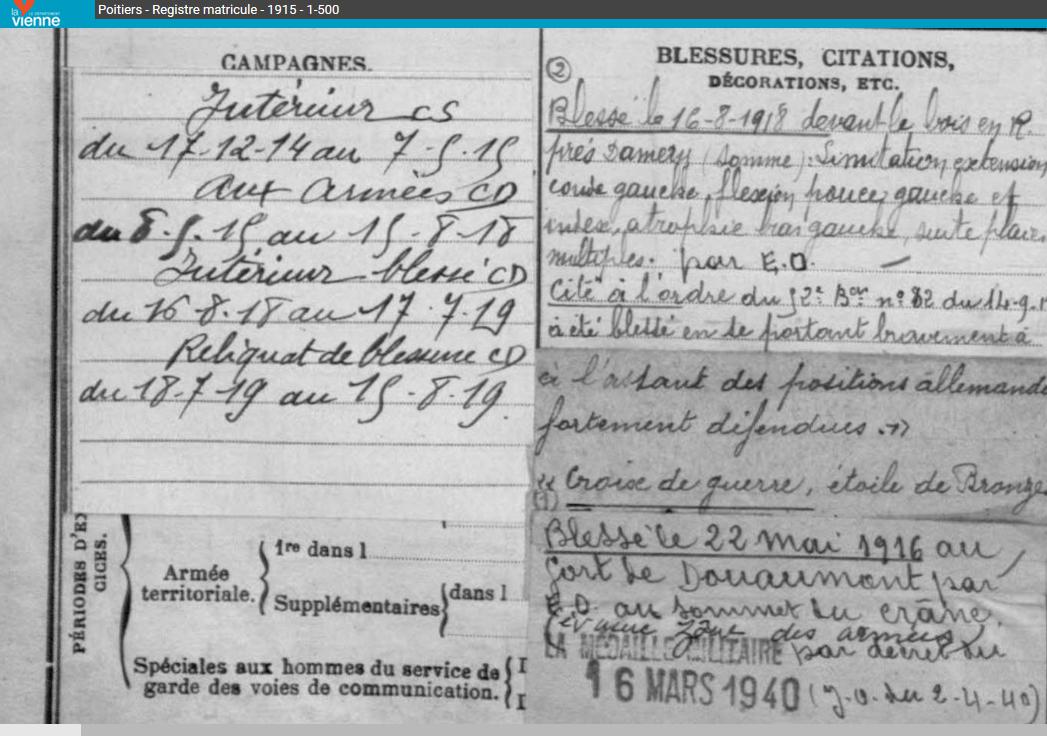 la vienne
Poitiers - Registre matricule - 1915 - 1-500
CAMPAGNES.
Intérieur CS
du 17-12-14 au 7-5-15
aux armées CD
du 8-5-15 au 15-8-18
Intérieur blessé CD
du 16-8-18 au 17-7-19
Reliquat de blessure CD
du 18-7-19 au 15-8-19.
PÉRIODES D'EX
CICES.
Armée
territoriale.
1re dans l
Supplémentaires
dans l
Spéciales aux hommes du service de
garde des voies de communication.
BLESSURES, CITATIONS,
DÉCORATIONS, ETC.
(2)
Blessé le 16-8-1918 devant le bois en R.
près Damery (Somme): Limitation, extension
coude gauche, flexion pouce gauche et
index, atrophie bras gauche, suite plaies
multiples. par E.O. —
Cité à l'ordre du 52e Bon n° 82 du 14-9-1
a été blessé en se portant bravement à
à l'assaut des positions allemande
fortement défendues . »
« Croix de guerre, étoile de Bronze.
(1)
Blessé le 22 mai 1916 au
fort de Douaumont par
E.O. au sommet du crâne.
zone des armées)
LA MEDAILLE MILITAIRE par décret du
16 MARS 1940 (J.O. du 2-4-40)